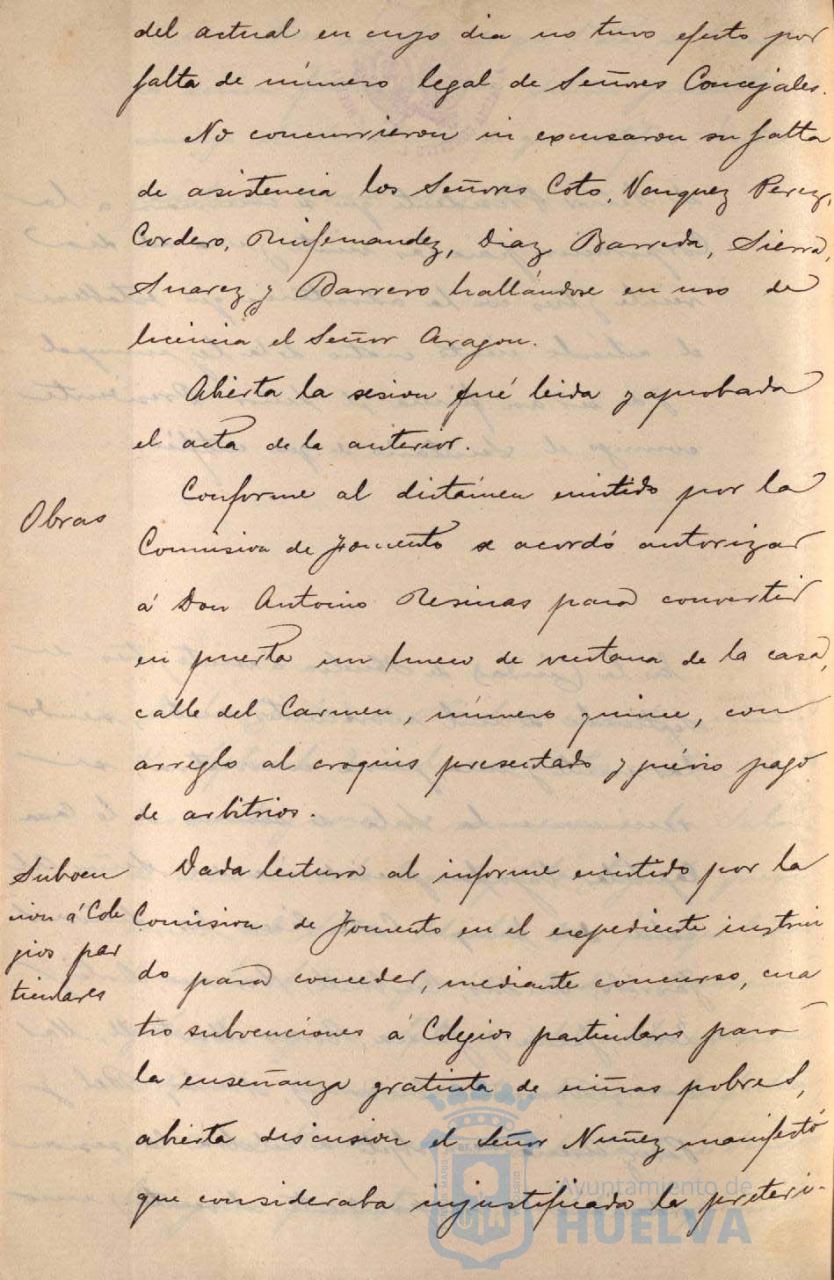 del actual en cuyo dia no tuvo efecto por
falta de número legal de Señores Concejales.
No concurrieron ni excusaron su falta
de asistencia los Señores Coto, Vazquez Perez,
Cordero, Ruifernandez, Diaz, Barreda, Sierra,
Suarez y Barrero hallándose en uso de
licencia el Señor Aragon.
Abierta la sesion fué leida y aprobada
el acta de la anterior.
Obras
Conforme al dictámen emitido por la
Comision de Fomento se acordó autorizar
á Don Antonio Resinas para convertir
en puerta un hueco de ventana de la casa,
calle del Carmen, número quince, con
arreglo al croquis presentado y prévio pago
de arbitrios.
Subven
cion á Cole
gios par
ticulares
Dada lectura al informe emitido por la
Comision de Fomento en el expediente instrui
do para conceder, mediante concurso, cua
tro subvenciones á Colegios particulares para
la enseñanza gratuita de niñas pobres,
abierta discusion el Señor Nuñez manifestó
que consideraba injustificada la preteri-
Ayuntamiento de
HUELVA